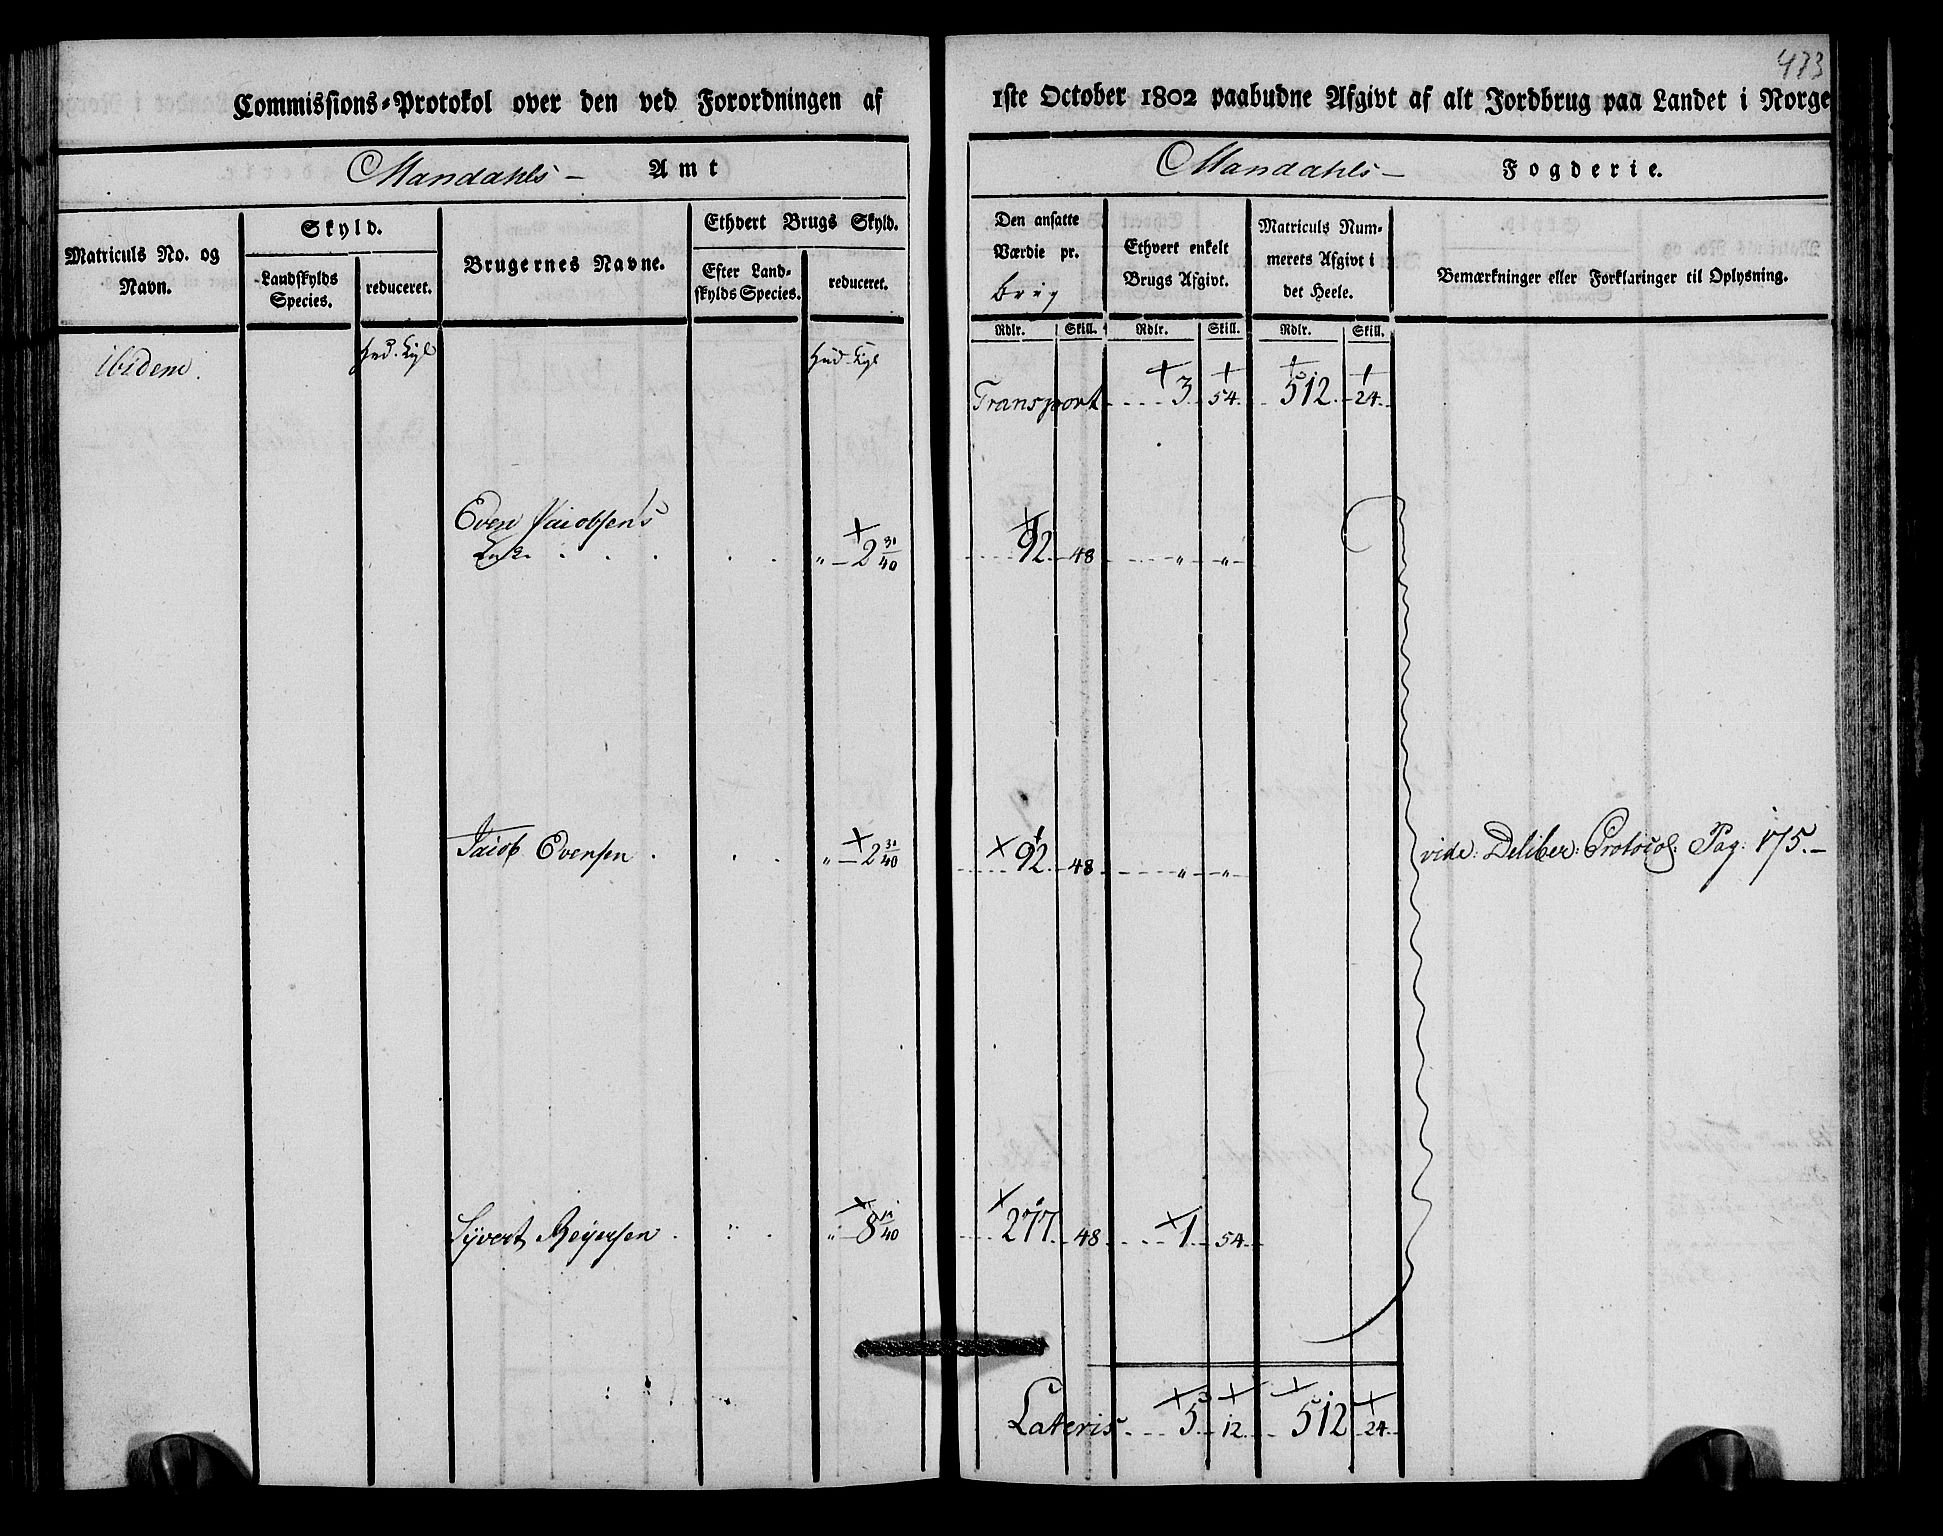 473
Commissions-Protokol over den ved Forordningen af 1ste October 1802 paabudne Afgivt af alt Jordbrug paa Landet i Norge
Mandahls- Amt
Mandahls- Fogderie.
Matriculs No. og Navn.
Skyld.
Landskylds Species.
reduceret.
Brugernes Navne.
Ethvert Brugs Skyld.
Efter Landskylds Species.
reduceret.
Den ansatte Værdie pr. brug
Ethvert enkelt Brugs Afgivt.
Matriculs Nummerets Afgivt i det Heele.
Bemærkninger eller Forklaringer til Oplysning.
Rdlr. Skill. Rdlr. Skill. Rdlr. Skill.
ibidem. Hud. Kgl Hud. Kgl
Transport 3 54 512 24
Even Jacobsens
Enke . . . . . " 2 30/40 92 48 " "
Jacob Evensen . . . " 2 30/40 92 48 " " vide: Deliber: Protocol: Pag: 175.-
Syvert Reyersen . : . " 8 /40 277 48 1 54
Lateris 5 12 512 24